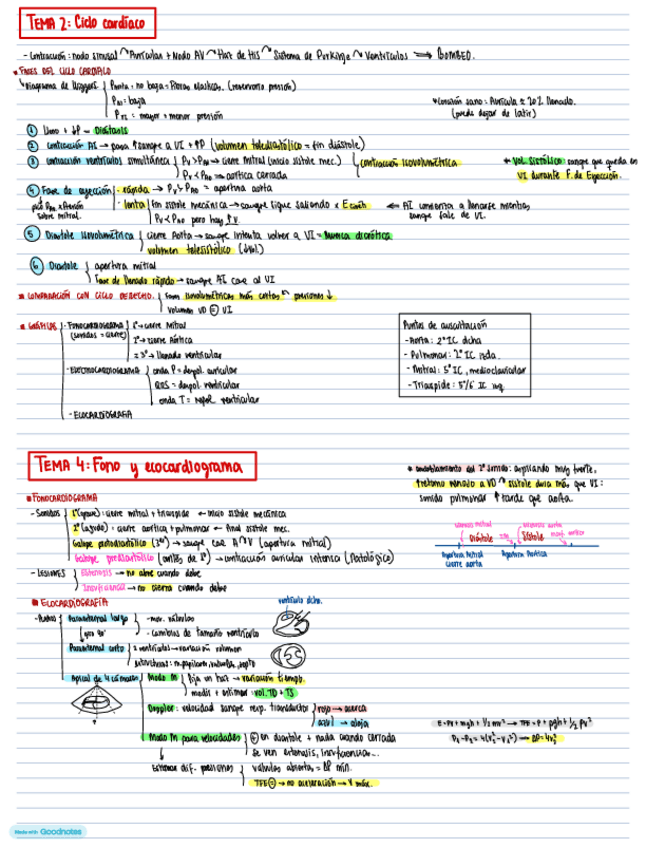 TEMA 2: Ciclo cardíaco
- Contracción: nodo sinusal → Aurículas + Nodo AV → Haz de His → Sistema de Purkinje → Ventrículos ⟹ BOMBEO.
FASES DEL CICLO CARDIACO
Diagrama de Wiggers
Paorta: no baja = fibras elásticas. (reservorio presión)
baja
mayor + menor presión
* Corazón sano: Aurícula ≈ 20% llenado.
(puede dejar de latir)
① Lleno + ↓P = Diástasis
② Contracción AI → pasa ↑sangre a VI + ↑P (volumen telediastólico = fin diástole)
③ contracción ventrículos simultánea
Pv > PAI → cierre mitral (inicio sístole mec.)
Pv < PAo → aórtica cerrada
contracción isovolumétrica
Vol. sistólico: sangre que queda en
VI durante F. de Eyección.
④ Fase de eyección
- rápida → Pv > PAo = apertura aorta
- lenta
fin sístole mecánica → sangre sigue saliendo x Ecinét
Pv < PAo pero hay ↑v.
⇐ AI comienza a llenarse mientras
sangre sale de VI.
sobre mitral.
⑤ Diástole isovolumétrica
cierre Aorta → sangre intenta volver a VI = Muesca dicrótica
volumen telesistólico
⑥ Diástole
apertura mitral
Fase de llenado rápido → sangre AI cae al VI
COMPARACIÓN CON CICLO DERECHO.
Fases isovolumétricas más cortas presiones ↓
Volumen VD = VI
GRÁFICAS
- FONOCARDIOGRAMA
(sonidos = cierre)
1º → cierre Mitral
2º → cierre Aórtica
= 3º → llenado ventricular
- ELECTROCARDIOGRAMA
onda P = despol. auricular
QRS = despol. ventricular
onda T = repol. ventricular
- ECOCARDIOGRAFÍA
Puntos de auscultación
- Aorta: 2º IC dcha
- Pulmonar: 2º IC izda.
- Mitral: 5º IC, medioclavicular
- Tricúspide: 5º/6º IC izq
TEMA 4: Fono y ecocardiograma
* desdoblamiento del 2º sonido: inspirando muy fuerte,
↑retorno venoso a VD → sístole dura más, que VI:
sonido pulmonar ↑ tarde que aorta.
FONOCARDIOGRAMA
- Sonidos
1º (grave): cierre mitral + tricúspide ← inicio sístole mecánica
2º (agudo): cierre aórtica + pulmonar ← final sístole mec.
Galope protodiastólico (3º) → sangre cae A→V (apertura mitral)
Galope presistólico (antes de 1º) → contracción auricular intensa (Patológico)
Diástole
Sístole
Apertura Mitral
cierre aorta
Apertura Aórtica
- LESIONES
Estenosis → no abre cuando debe
Insuficiencia → no cierra cuando debe
ECOCARDIOGRAFÍA
- Planos
Paraesternal largo
- mov. válvulas
- cambios de tamaño ventrículo
ventrículo dcho.
giro 90º
Paraesternal corto
2 ventrículos → variación volumen
estructuras: m. papilares, válvulas, septo
Apical de 4 cámaras
Modo M
fija un haz → variación tiempo.
medir + estimar: vol. TD + TS
Doppler: velocidad sangre resp. transductor
rojo → acerca
azul → aleja
Modo M para velocidades
⊕ en diástole + nada cuando cerrada
Se ven estenosis, insuficiencias...
Estimar dif. presiones
válvulas abiertas = ΔP min.
→ no aceleración → V máx.
E = PV + mgh + 1/2 mv² → TFE = P + ρgh + 1/2 ρv²
P₁ - P₂ = 4(v₂² - v₁²) → ΔP = 4v₂²
Made with Goodnotes